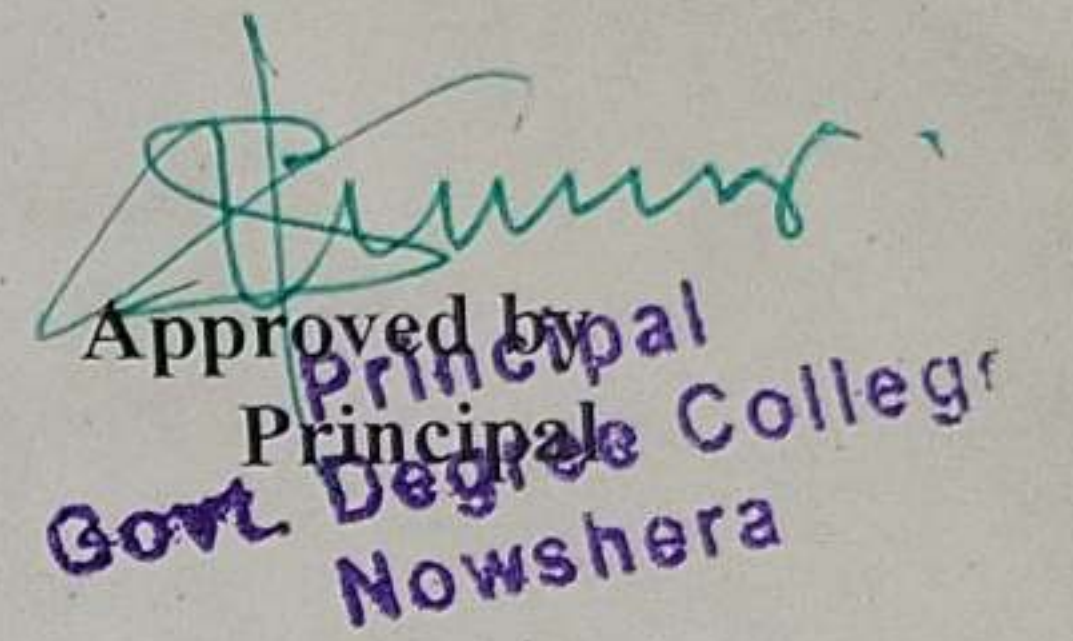 Approved by
Principal
Principal
Govt. Degree College
Nowshera